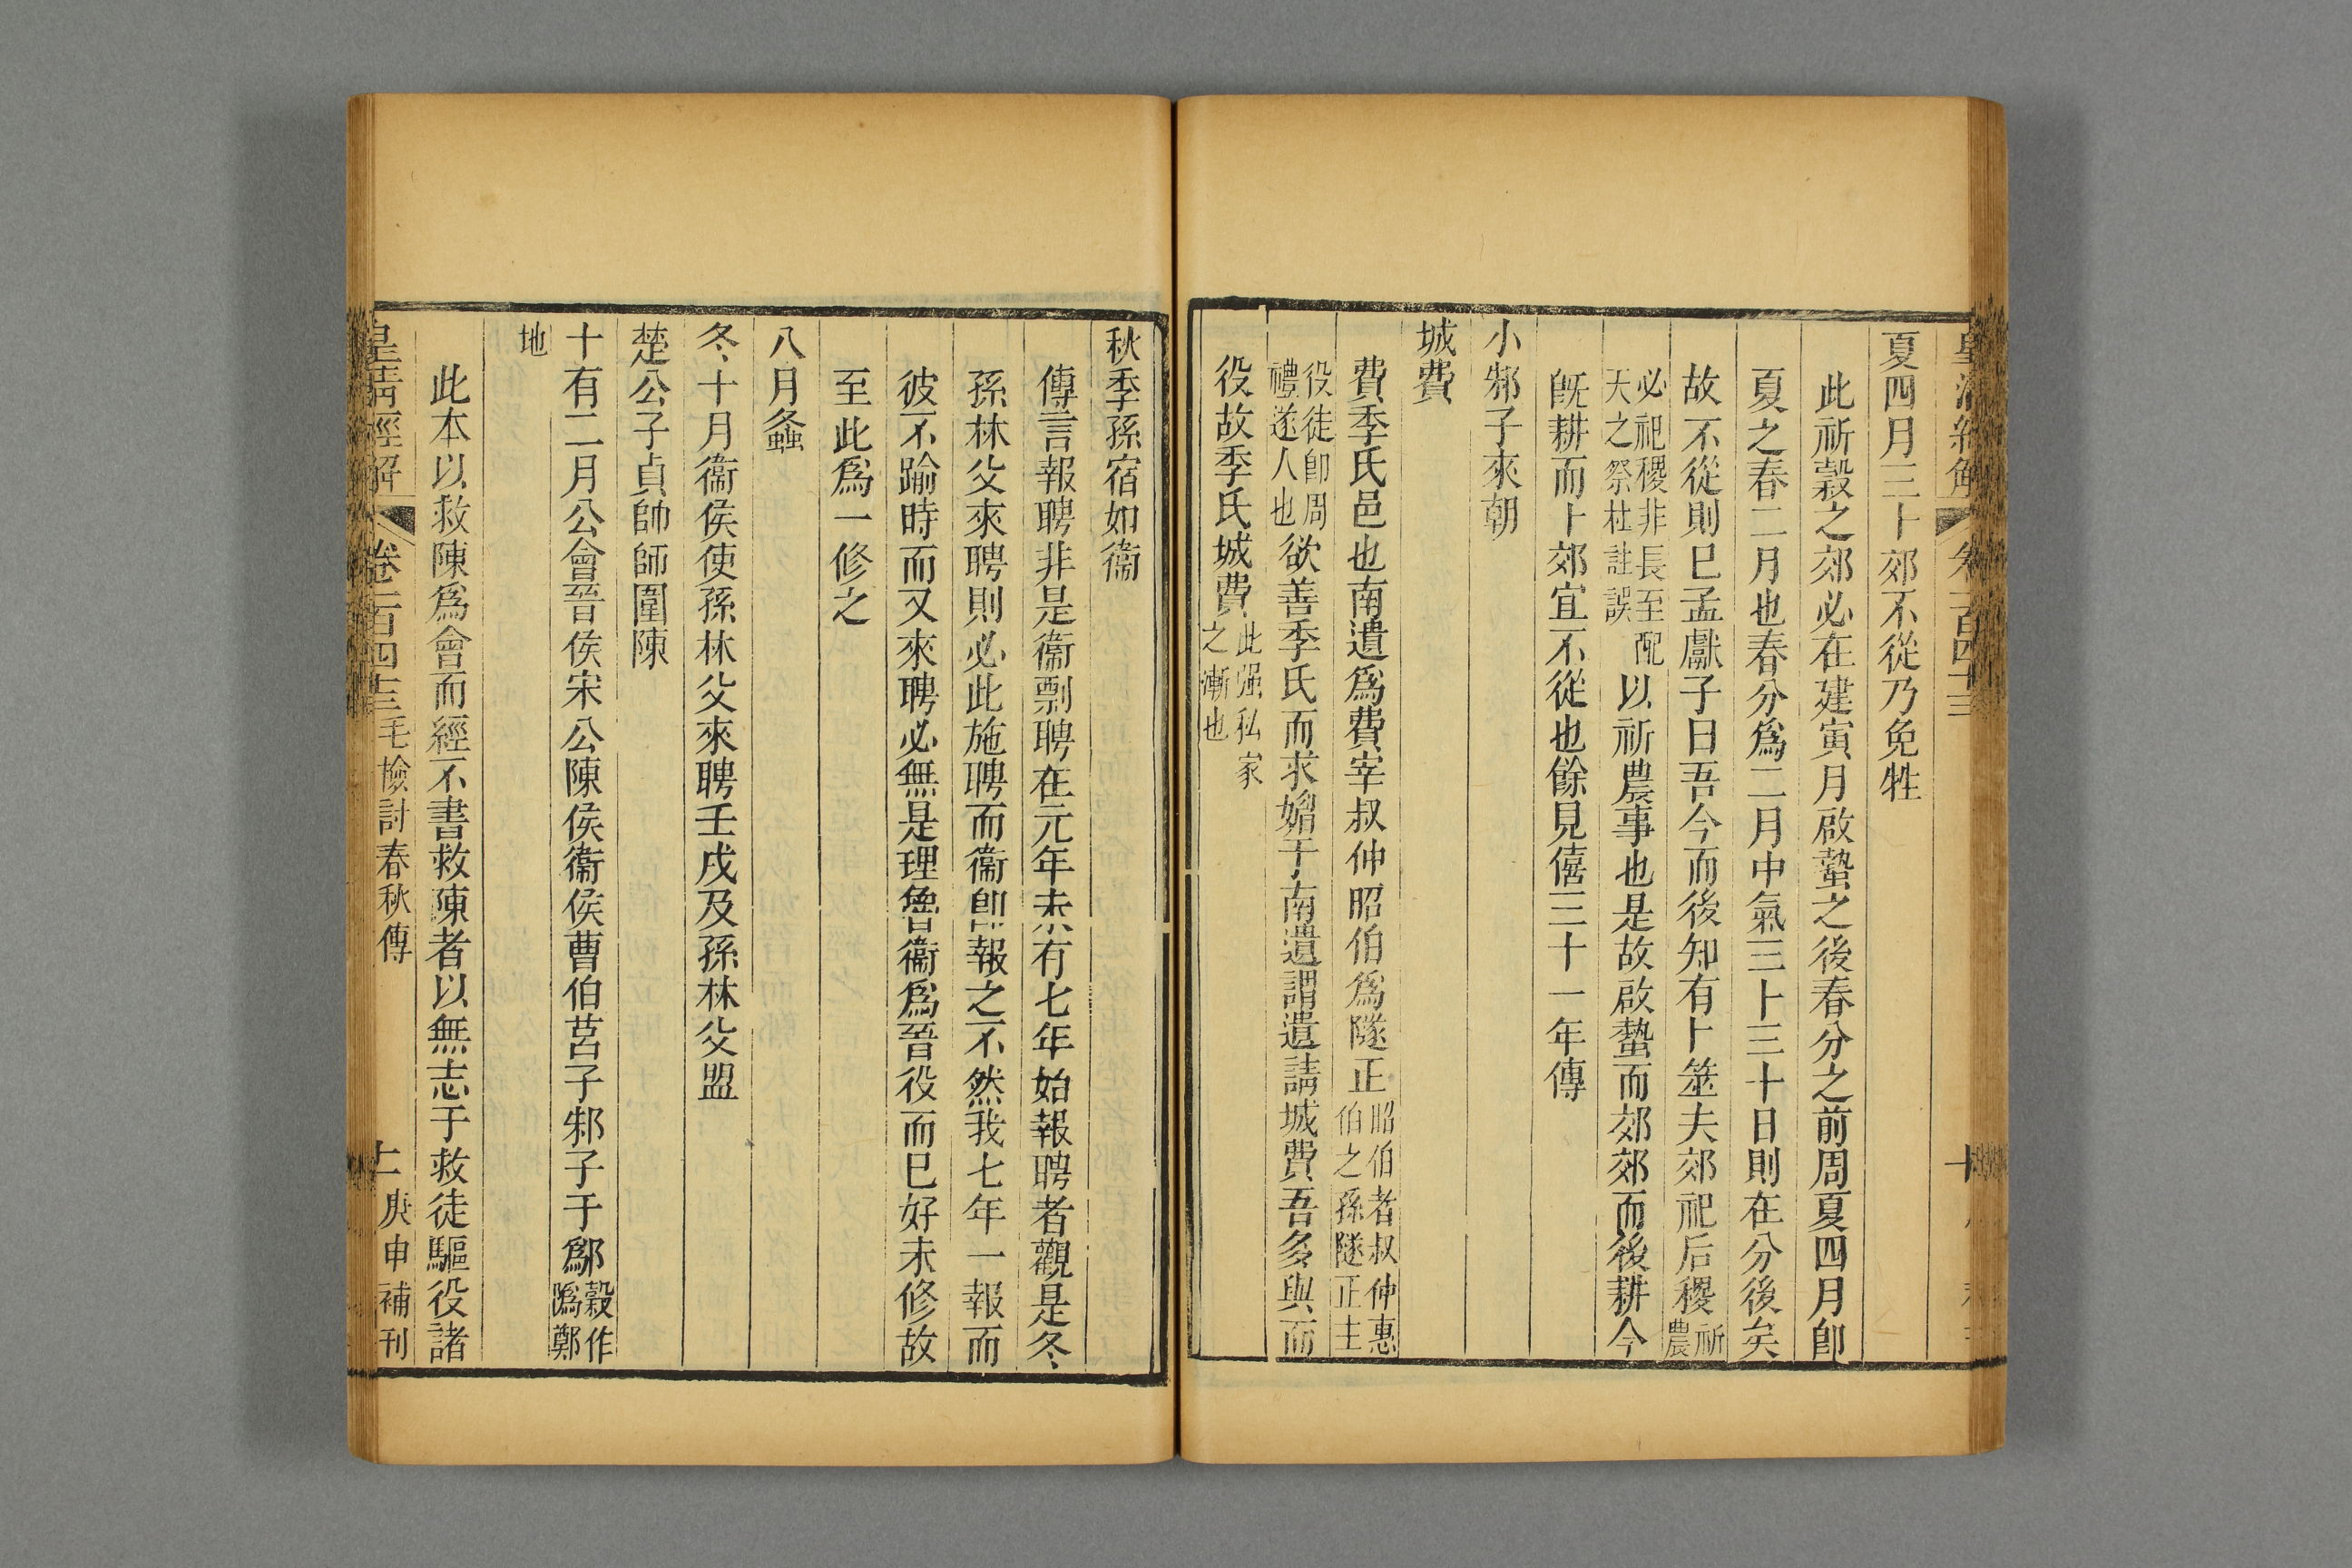 夏四月三卜郊不從乃免牲
此祈穀之郊必在建寅月啟蟄之後春分之前周夏四月卽
夏之春二月也春分爲二月中氣三卜三十日則在分後矣
故不從則已孟獻子曰吾今而後知有卜筮夫郊祀后稷祈農
必祀稷非長至配天之祭杜註誤以祈農事也是故啟蟄而郊郊而後耕今
旣耕而卜郊宜不從也餘見僖三十一年傳
小邾子來朝
城費
費季氏邑也南遺爲費宰叔仲昭伯爲隧正昭伯者叔仲惠伯之孫隧正主
役徒卽周禮遂人也欲善季氏而求媚于南遺謂遺請城費吾多與而
役故季氏城費此强私家之漸也
秋季孫宿如衞
傳言報聘非是衞剽聘在元年未有七年始報聘者觀是冬
孫林父來聘則必此施聘而衞卽報之不然我七年一報而
彼不踰時而又來聘必無是理魯衞爲晉役而已好未修故
至此爲一修之
八月螽
冬十月衞侯使孫林父來聘壬戌及孫林父盟
楚公子貞帥師圍陳
十有二月公會晉侯宋公陳侯衞侯曹伯莒子邾子于鄬穀作隝鄭
地
此本以救陳爲會而經不書救陳者以無志于救徒驅役諸
皇淸經解 卷一百四十三 毛檢討春秋傳 十一 庚申補刊